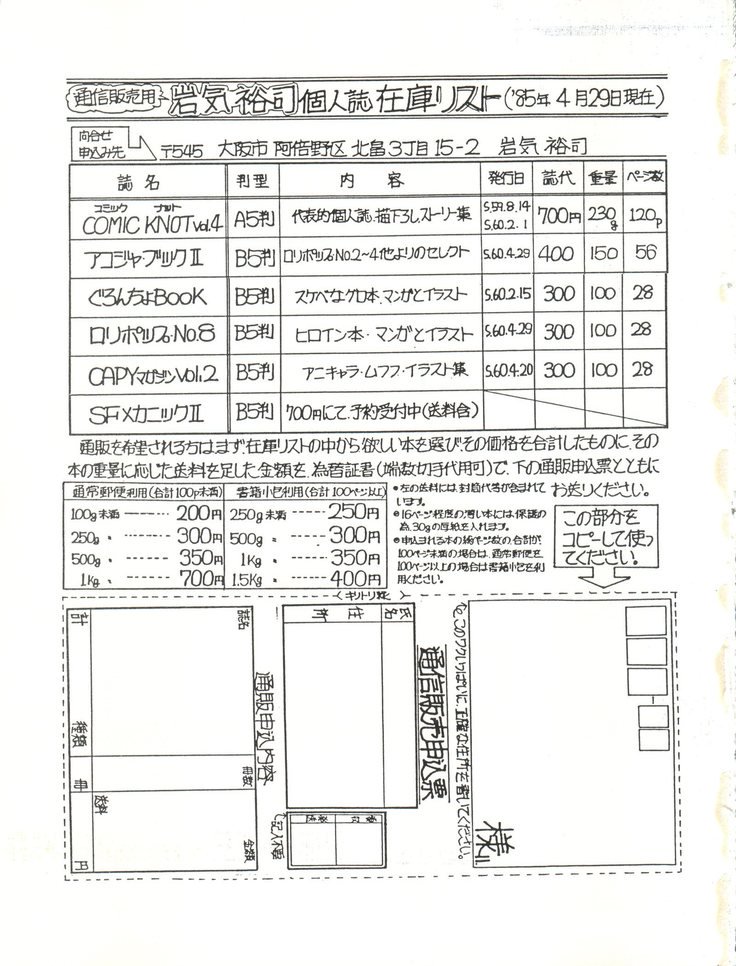 通信販売用 岩気裕司個人誌在庫リスト('85年4月29日現在)
問合せ
申込み先
〒545 大阪市阿倍野区北畠3丁目15-2 岩気裕司
誌名 判型 内容 発行日 誌代 重量 ページ数
コミック ノット
COMIC KNOT vol.4 A5判 代表的個人誌、描下ろしストーリー集 S.59.8.14 S.60.2.1 700円 230g 120p
アコジャ・ブックⅡ B5判 ロリポップスNo.2〜4他よりのセレクト S.60.4.29 400 150 56
ぐろんちょBooK B5判 スケベなグロ本、マンガとイラスト S.60.2.15 300 100 28
ロリポップス・No.8 B5判 ヒロイン本・マンガとイラスト S.60.4.29 300 100 28
CAPYマガジンVol.2 B5判 アニキャラ・ムフフ・イラスト集 S.60.4.20 300 100 28
SFメカニックⅡ B5判 700円にて、予約受付中(送料含)
通販を希望される方はまず、在庫リストの中から欲しい本を選び、その価格を合計したものに、その
本の重量に応じた送料を足した金額を、為替証書(端数切手代用可)で、下の通販申込票とともに
お送りください。
通常郵便利用(合計100p未満)
100g未満 ------- 200円
250g 〃 ------- 300円
500g 〃 ------- 350円
1Kg 〃 ------- 700円
書籍小包利用(合計100ページ以上)
250g未満 ------ 250円
500g 〃 ------ 300円
1Kg 〃 ------ 350円
1.5Kg 〃 ------ 400円
●左の送料には、封筒代等が含まれています。
●16ページ程度の薄い本には、保護の為、30gの厚紙を入れます。
●申込まれる本の総ページ数の合計が、
100ページ未満の場合は、通常郵便を、
100ページ以上の場合は書籍小包を利用ください。
この部分を
コピーして使っ
てください。
キリトリ線
このワクいっぱいに、正確な住所を書いてください。
様
通信販売申込票
氏名
住所
記入不要
受付
発送
通販申込内容
誌名
冊数
金額
計
種類
冊
送料
円